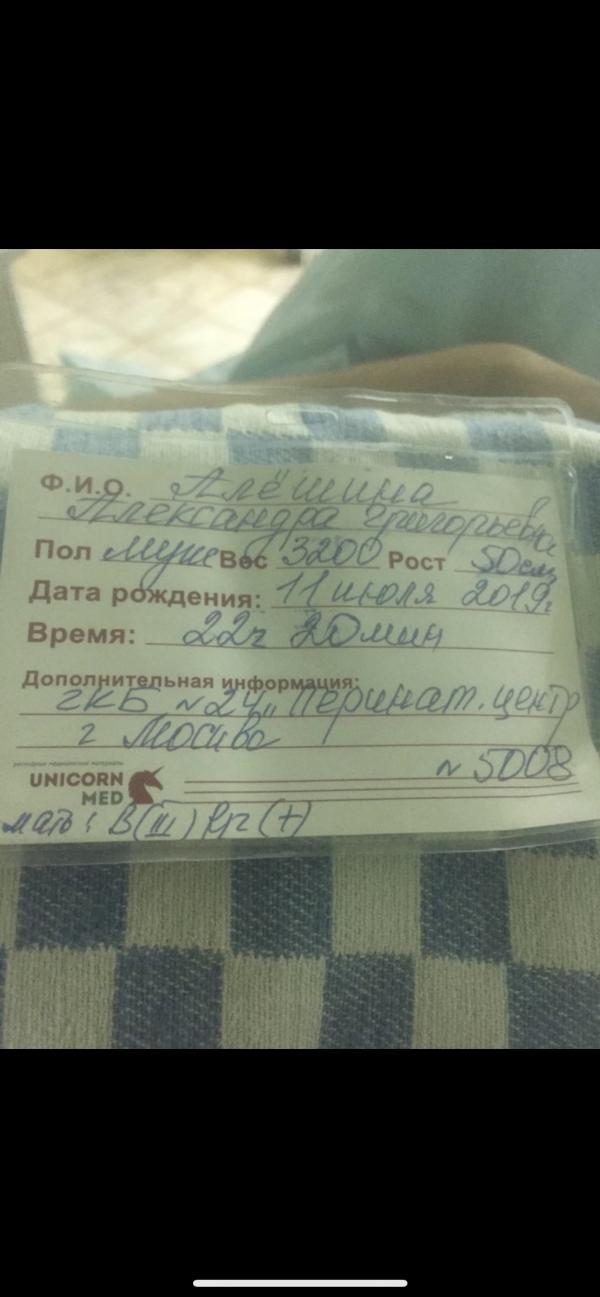 Ф.И.О. Алёшина
Александра Григорьевна
Пол муж Вес 3200 Рост 50 см
Дата рождения: 11 июля 2019г.
Время: 22ч 20мин
Дополнительная информация:
ГКБ №24 „Перинат. центр
г Москва
расходные медицинские материалы
UNICORN
MED
№ 5008
мать: В(III) Rh (+)